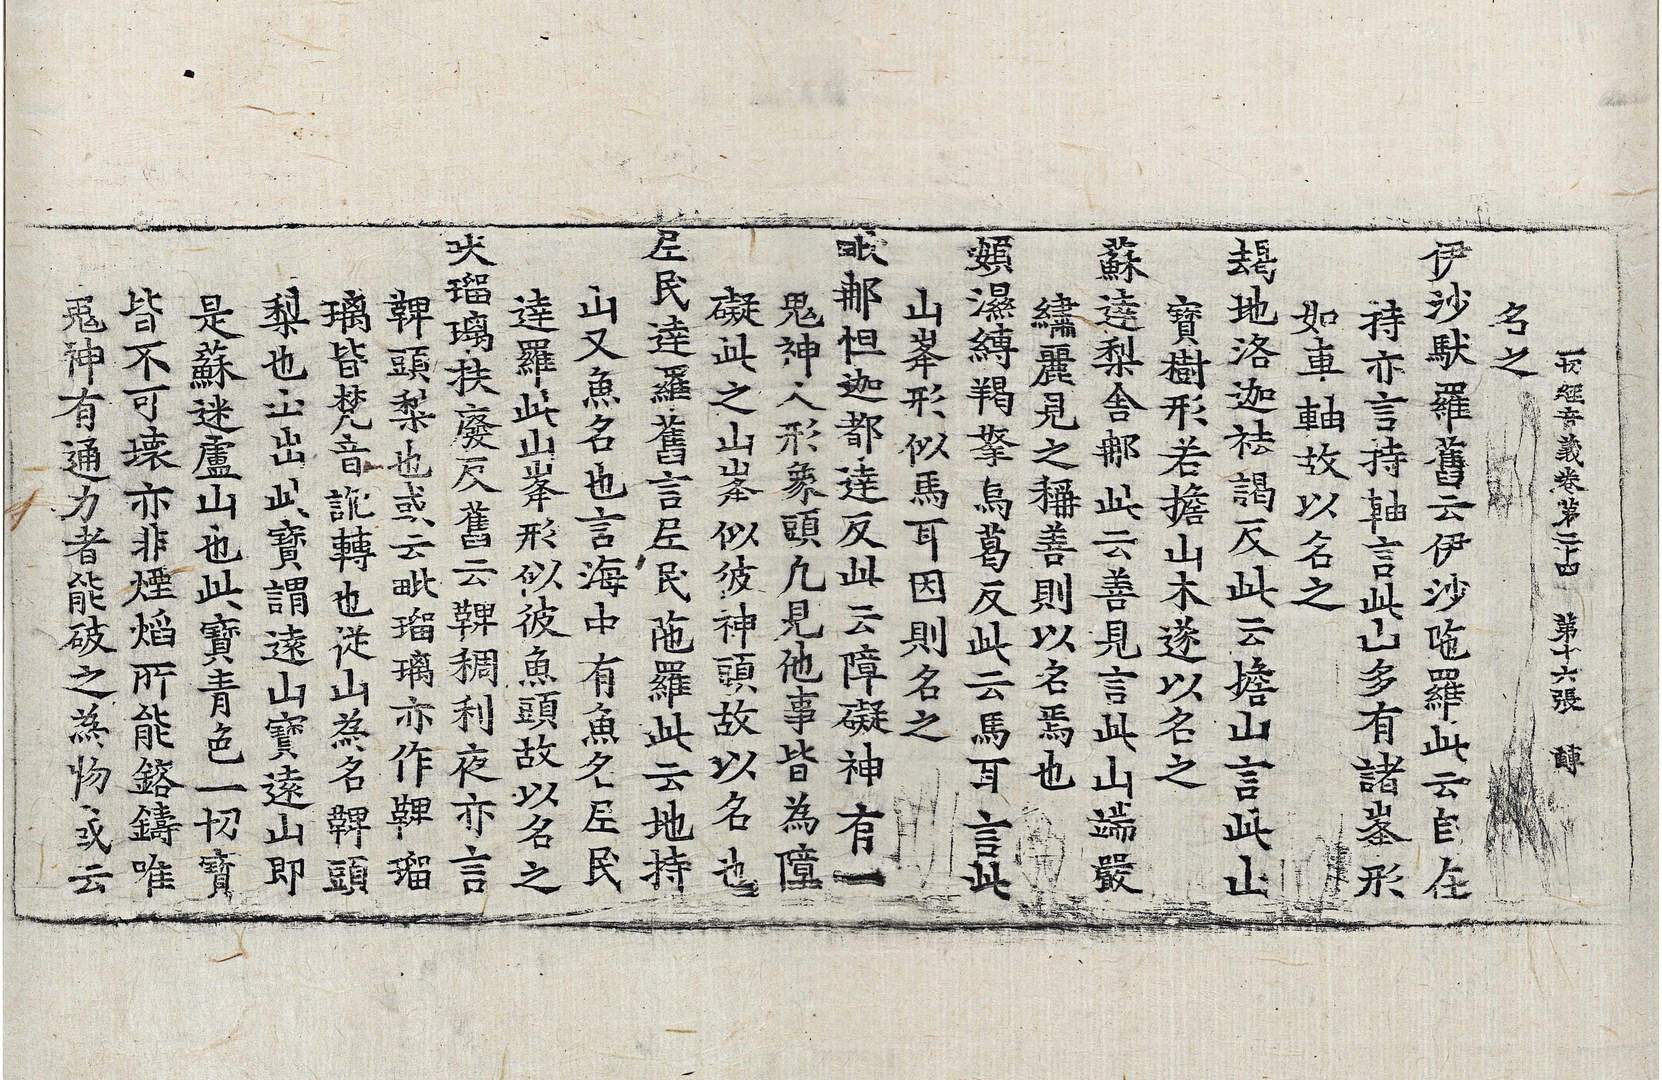 一切經音義卷第二十四 第十六張 轉
名之
伊沙馱羅舊云伊沙陁羅此云自在
持亦言持軸言此山多有諸峯形
如車軸故以名之
朅地洛迦袪謁反此云擔山言此山
寶樹形若擔山木遂以名之
蘇達梨舍那此云善見言此山端嚴
繡麗見之稱善則以名焉也
頞濕縛羯拏烏葛反此云馬耳言此
山峯形似馬耳因則名之
毗那怛迦都達反此云障礙神有一
鬼神人形象頭凡見他事皆為障
礙此之山峯似彼神頭故以名也
尼民達羅舊言尼民陁羅此云地持
山又魚名也言海中有魚名尼民
達羅此山峯形似彼魚頭故以名之
吠瑠璃扶廢反舊云鞞稠利夜亦言
鞞頭梨也或云毗瑠璃亦作鞞瑠
璃皆梵音訛轉也從山為名鞞頭
梨也山出此寶謂遠山寶遠山即
是蘇迷盧山也此寶青色一切寶
皆不可壞亦非煙焰所能鎔鑄唯
鬼神有通力者能破之為物或云